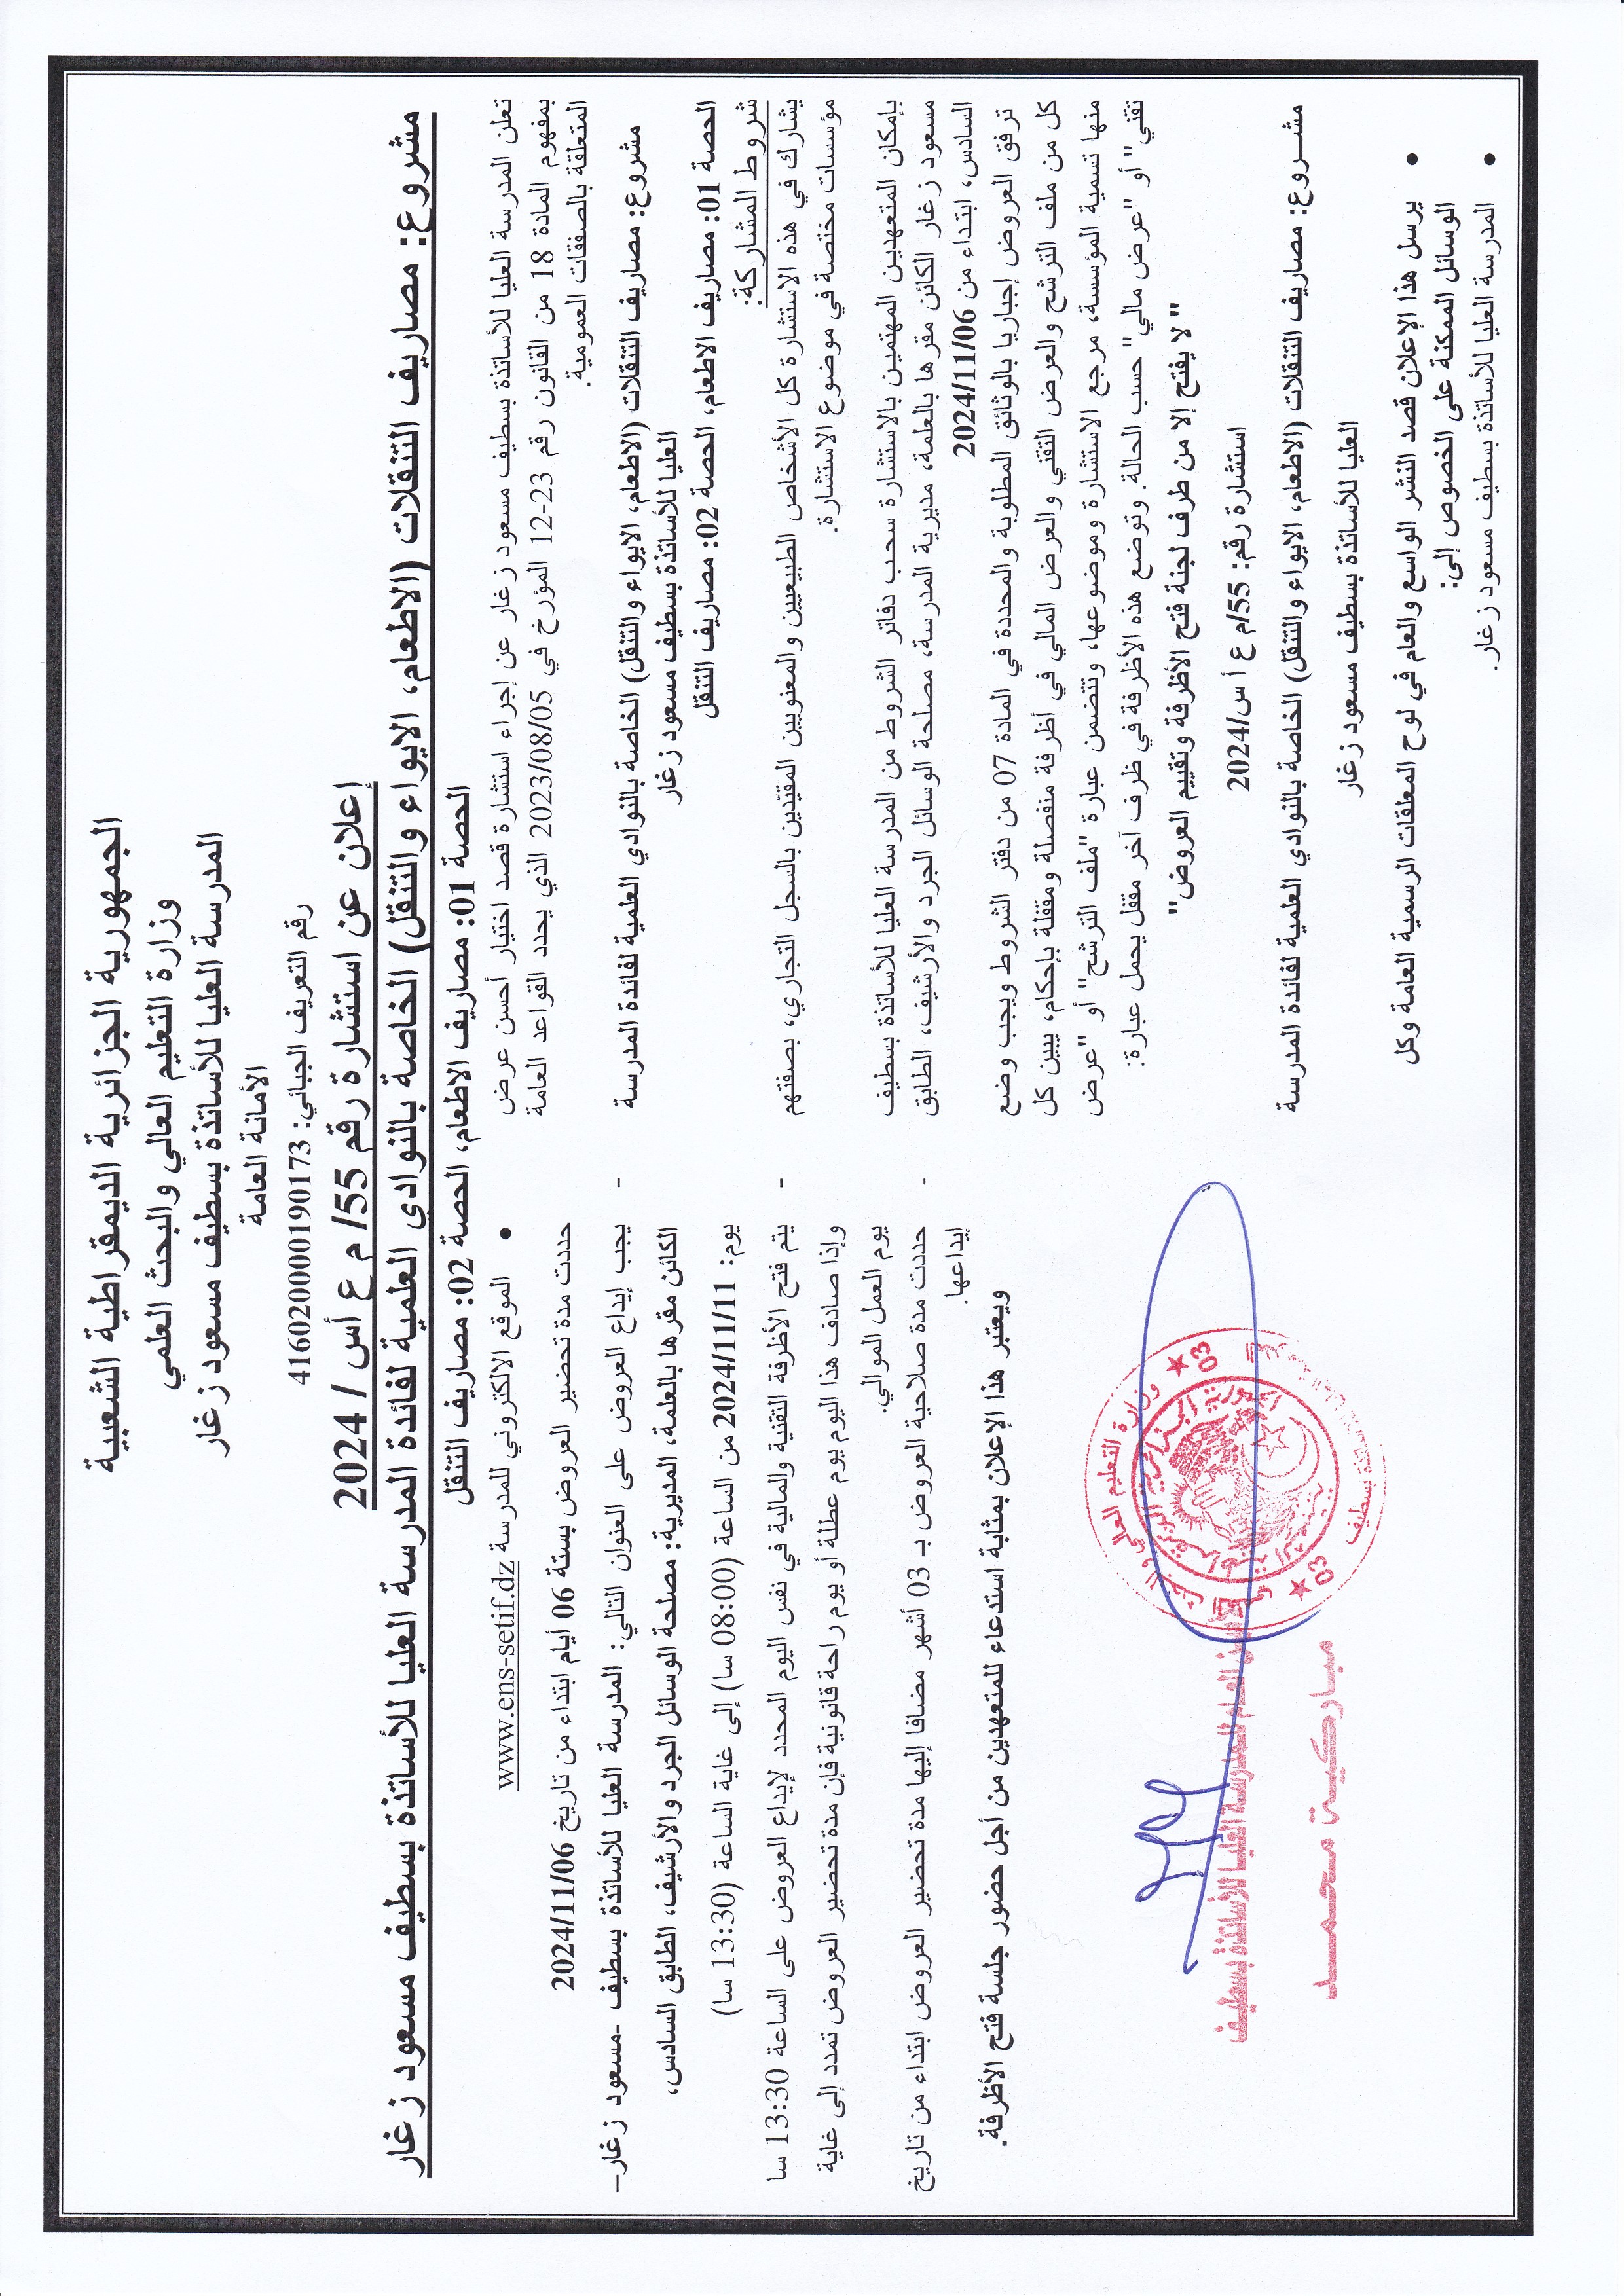 الجمهورية الجزائرية الديمقراطية الشعبية
وزارة التعليم العالي والبحث العلمي
المدرسة العليا للأساتذة بسطيف مسعود زغار
الأمانة العامة
رقم التعريف الجبائي: 416020000190173
إعلان عن استشارة رقم 55/ م ع أس / 2024
مشروع: مصاريف التنقلات (الاطعام، الايواء والتنقل) الخاصة بالنوادي العلمية لفائدة المدرسة العليا للأساتذة بسطيف مسعود زغار
الحصة 01: مصاريف الاطعام، الحصة 02: مصاريف التنقل
تعلن المدرسة العليا للأساتذة بسطيف مسعود زغار عن إجراء استشارة قصد اختيار أحسن عرض
بمفهوم المادة 18 من القانون رقم 23-12 المؤرخ في 2023/08/05 الذي يحدد القواعد العامة
المتعلقة بالصفقات العمومية.
مشروع: مصاريف التنقلات (الاطعام، الايواء والتنقل) الخاصة بالنوادي العلمية لفائدة المدرسة
العليا للأساتذة بسطيف مسعود زغار
الحصة 01: مصاريف الاطعام، الحصة 02: مصاريف التنقل
شروط المشاركة:
يشارك في هذه الاستشارة كل الأشخاص الطبيعيين والمعنويين المقيّدين بالسجل التجاري، بصفتهم
مؤسسات مختصة في موضوع الاستشارة.
بإمكان المتعهدين المهتمين بالاستشارة سحب دفاتر الشروط من المدرسة العليا للأساتذة بسطيف
مسعود زغار الكائن مقرها بالعلمة، مديرية المدرسة، مصلحة الوسائل الجرد والأرشيف، الطابق
السادس، ابتداء من 2024/11/06
ترفق العروض إجباريا بالوثائق المطلوبة والمحددة في المادة 07 من دفتر الشروط ويجب وضع
كل من ملف الترشح والعرض التقني والعرض المالي في أظرفة منفصلة ومقفلة بإحكام، يبين كل
منها تسمية المؤسسة، مرجع الاستشارة وموضوعها، وتتضمن عبارة "ملف الترشح" أو "عرض
تقني" أو "عرض مالي" حسب الحالة. وتوضع هذه الأظرفة في ظرف آخر مقفل يحمل عبارة:
" لا يفتح إلا من طرف لجنة فتح الأظرفة وتقييم العروض"
استشارة رقم: 55/م ع أ س/2024
مشـروع: مصاريف التنقلات (الاطعام، الايواء والتنقل) الخاصة بالنوادي العلمية لفائدة المدرسة
العليا للأساتذة بسطيف مسعود زغار
• يرسل هذا الإعلان قصد النشر الواسع والعام في لوح المعلقات الرسمية العامة وكل
الوسائل الممكنة على الخصوص إلى:
• المدرسة العليا للأساتذة بسطيف مسعود زغار.
• الموقع الالكتروني للمدرسة www.ens-setif.dz
حددت مدة تحضير العروض بستة 06 أيام ابتداء من تاريخ 2024/11/06
- يجب إيداع العروض على العنوان التالي: المدرسة العليا للأساتذة بسطيف -مسعود زغار–
الكائن مقرها بالعلمة، المديرية: مصلحة الوسائل الجرد والأرشيف، الطابق السادس،
يوم: 2024/11/11 من الساعة (08:00 سا) إلى غاية الساعة (13:30 سا)
- يتم فتح الأظرفة التقنية والمالية في نفس اليوم المحدد لإيداع العروض على الساعة 13:30 سا
وإذا صادف هذا اليوم يوم عطلة أو يوم راحة قانونية فإن مدة تحضير العروض تمدد إلى غاية
يوم العمل الموالي.
- حددت مدة صلاحية العروض بـ 03 أشهر مضافا إليها مدة تحضير العروض ابتداء من تاريخ
إيداعها.
ويعتبر هذا الإعلان بمثابة استدعاء للمتعهدين من أجل حضور جلسة فتح الأظرفة.
وزارة التعليم العالي
الجمهورية الجزائرية الديمقراطية الشعبية
03
03
العام للمدرسة العليا للأساتذة بسطيف
مباركية محمد